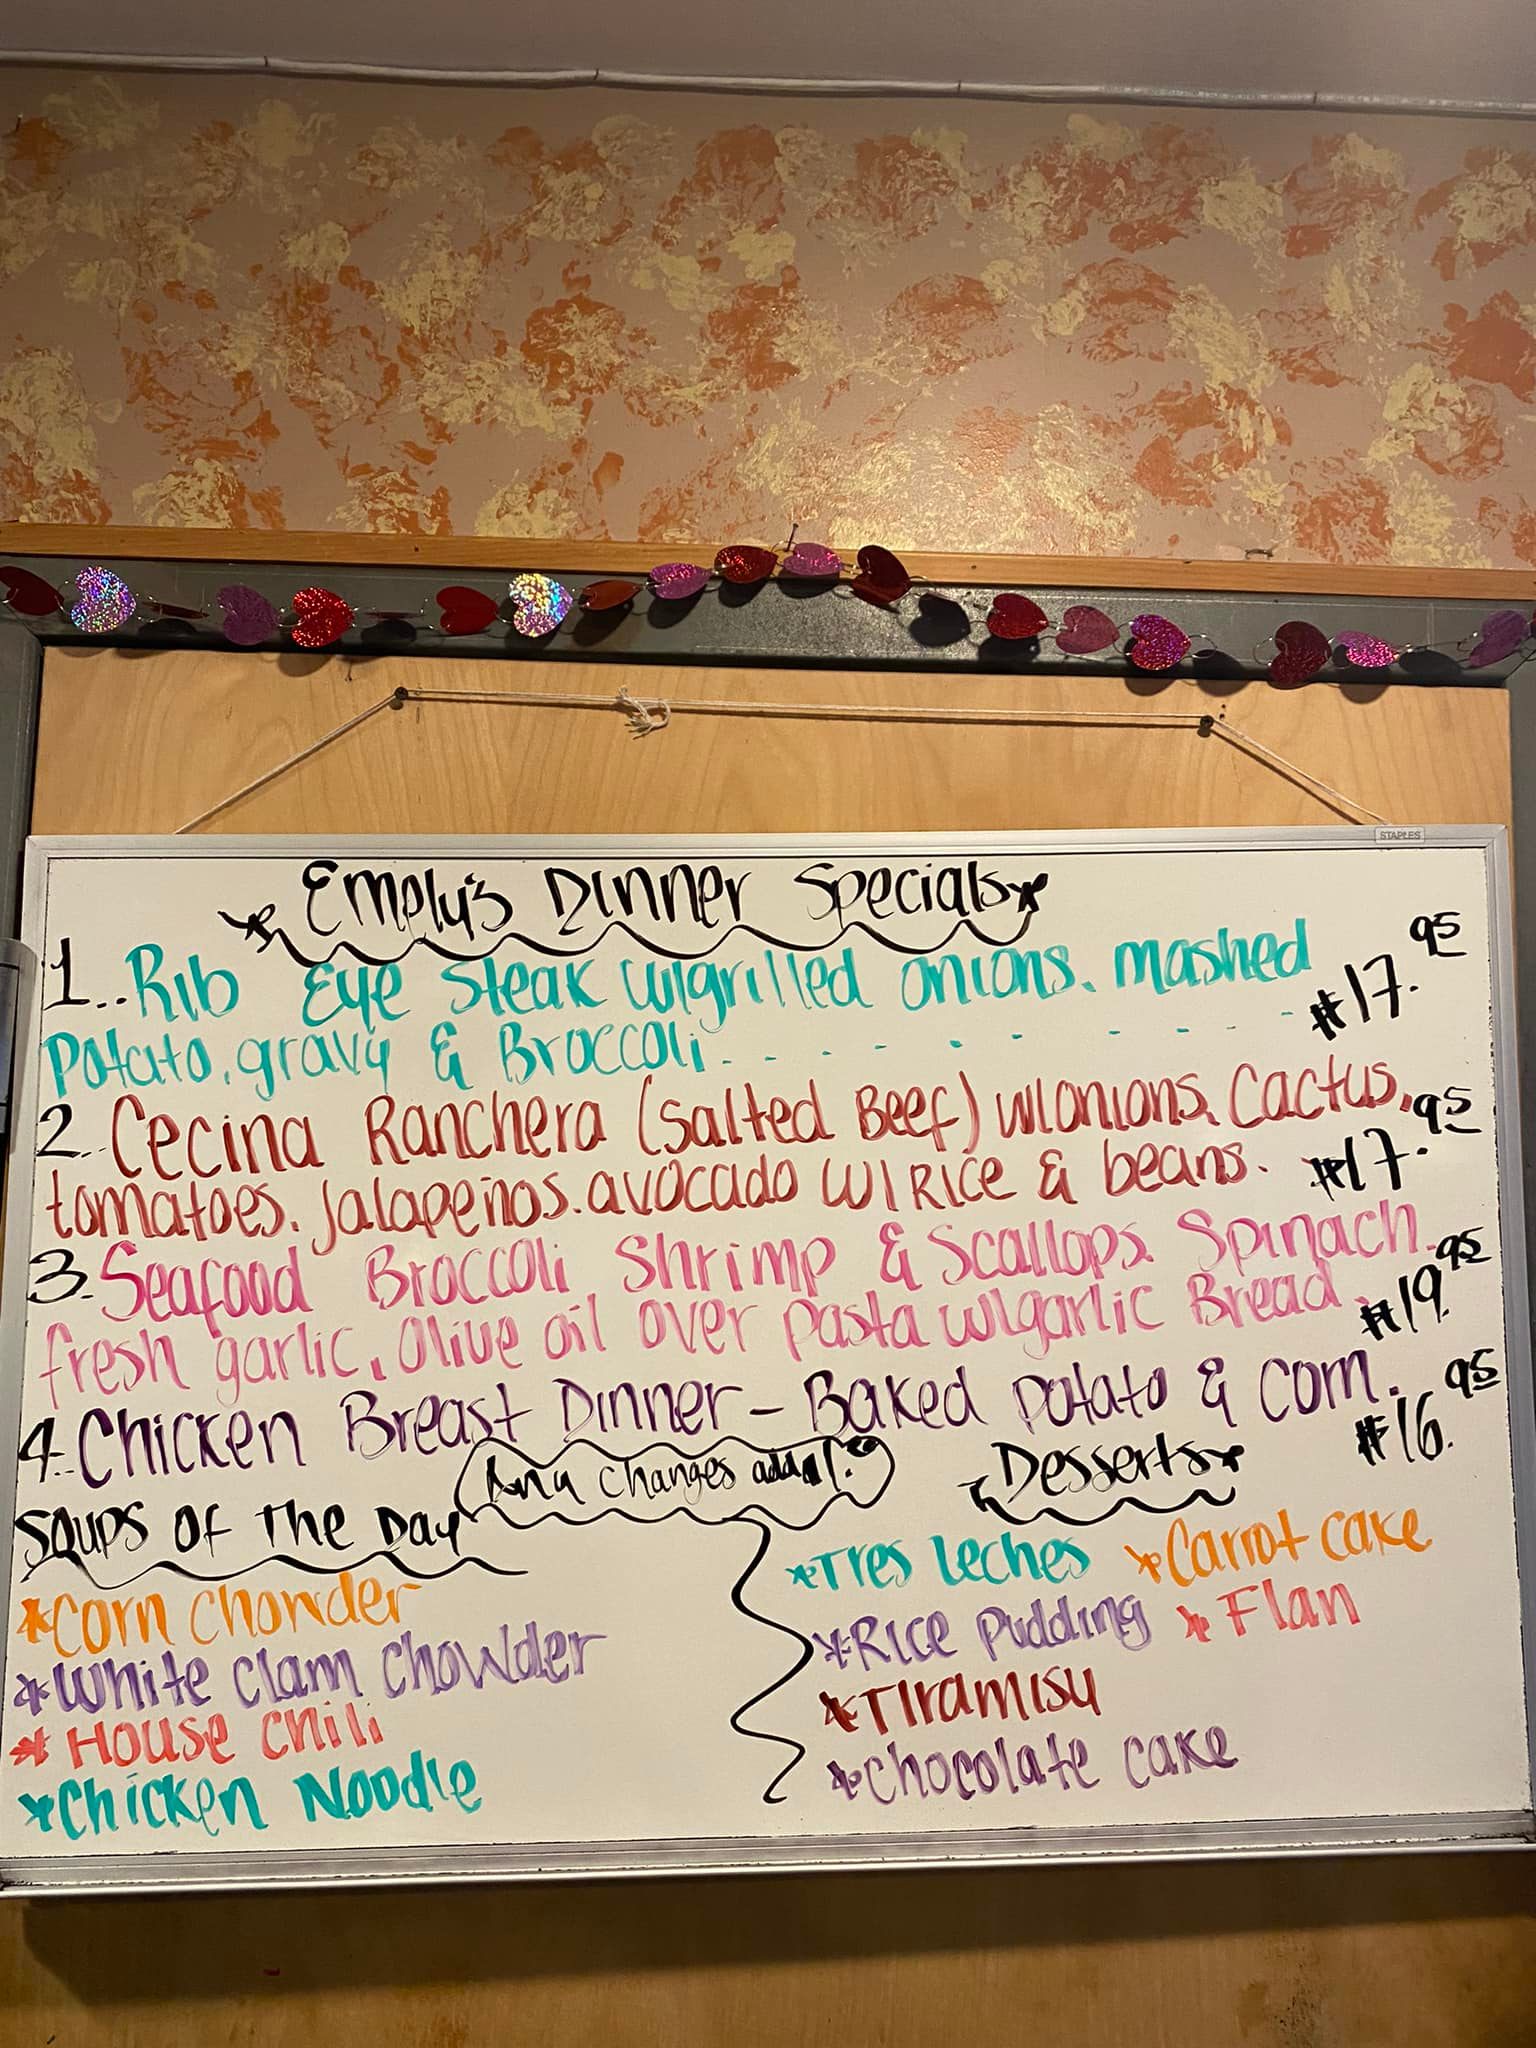 STAPLES
Emply's Dinner Specials
1.. Rib Eye Steak w/grilled onions, mashed
potato, gravy & Broccoli - - - - - - - - - #17.95
2.. Cecina Ranchera (salted Beef) w/onions, Cactus,
tomatoes, jalapeños, avocado w/ Rice & beans. #17.95
3. Seafood Broccoli Shrimp & Scallops, Spinach,
fresh garlic, olive oil over pasta w/garlic Bread. #19.95
4.. Chicken Breast Dinner - Baked potato & corn. #16.95
Any changes add $1.00
Soups of The Day
*Corn chowder
*White clam chowder
*House chili
*Chicken Noodle
Desserts
*Tres Leches *Carrot cake
*Rice pudding *Flan
*Tiramisu
*Chocolate cake